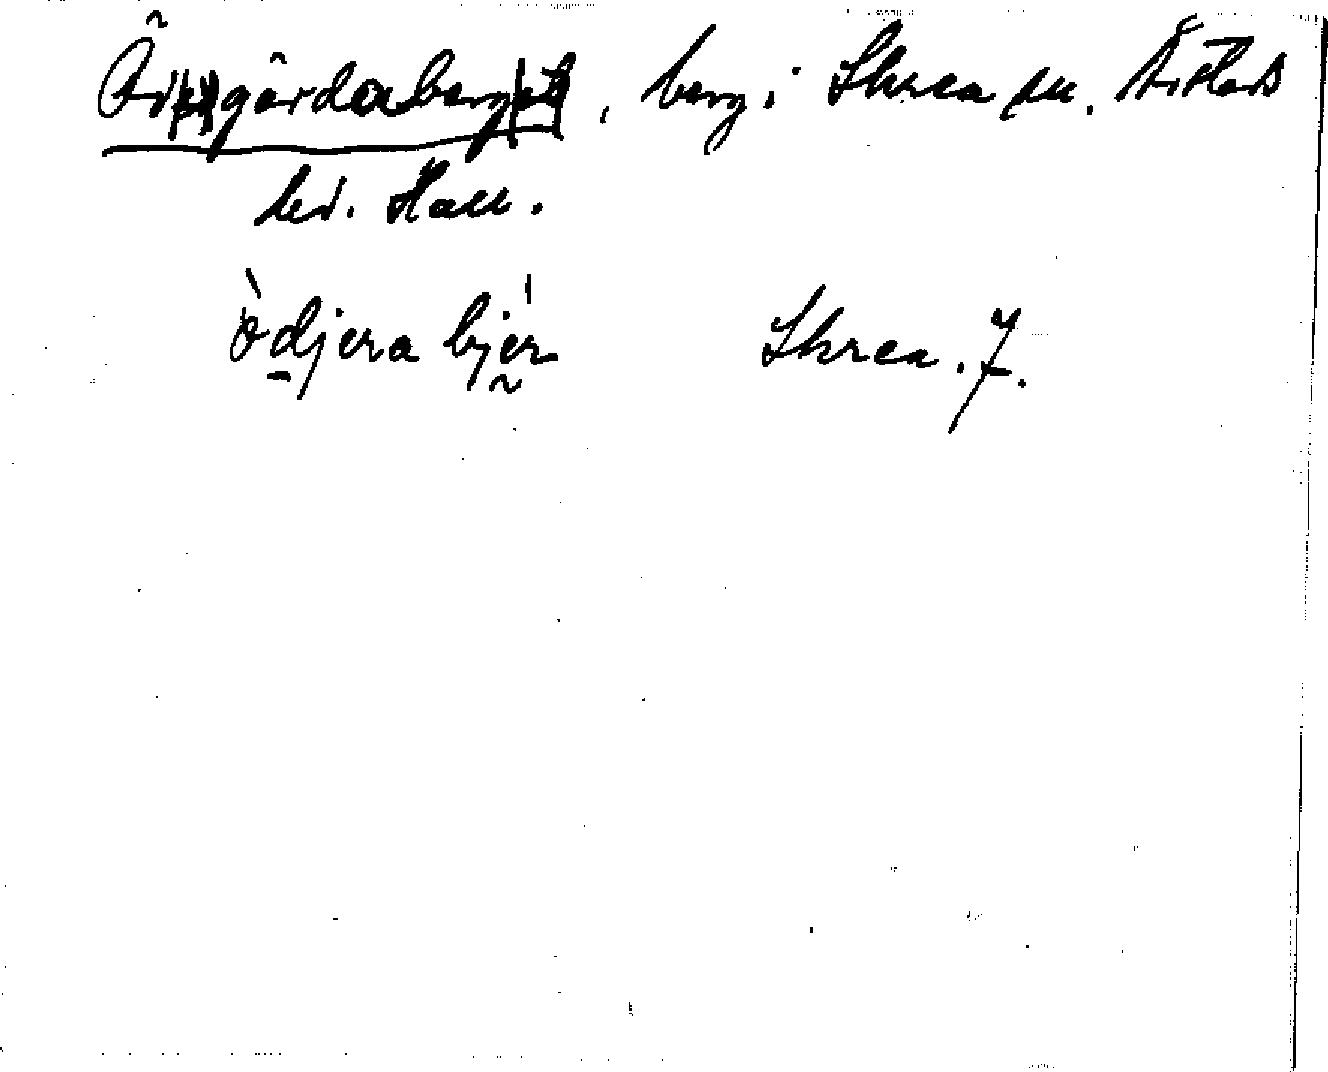 Ödegärdaberg, berg i Skrea sn. Årstads
hd. Hall.
òdjera bjér Skrea. 7.